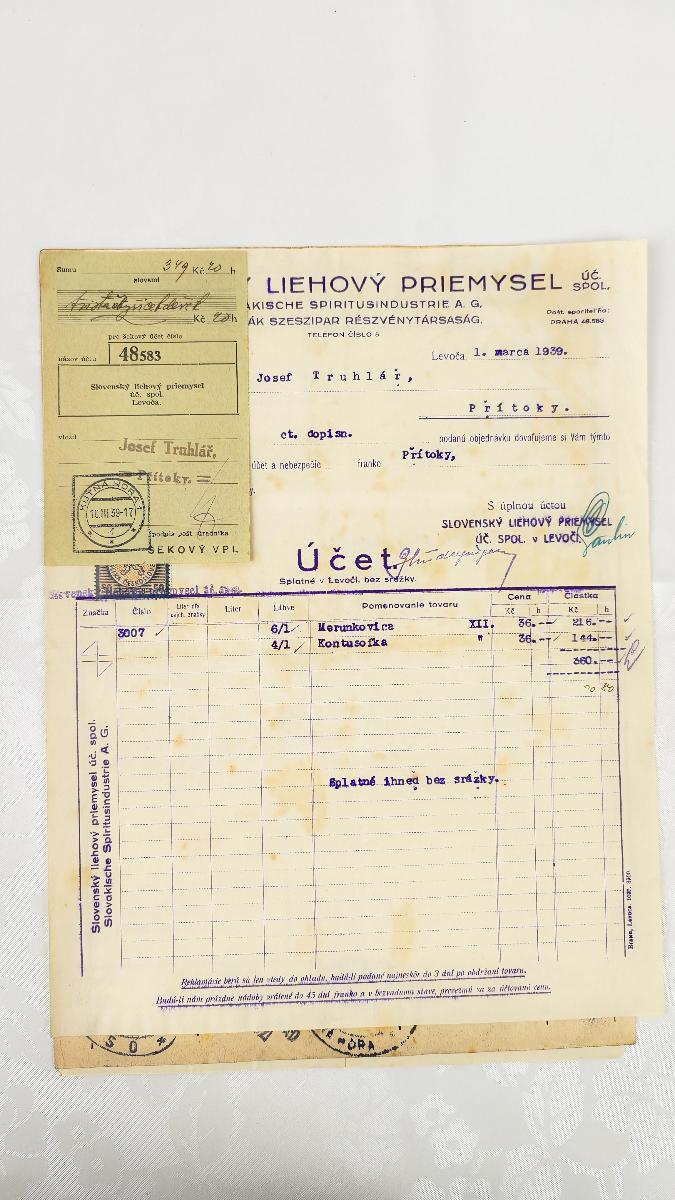 Sumu 349 Kč 20 h
slovami
Kč 20 h
pre šekový účet číslo
názov účtu 48583
Slovenský liehový priemysel
úč. spol.
Levoča.
vložil
Josef Truhlář,
Přítoky.
KUTNÁ HORA 1
10.III.39-17
podpis pošt. úradníka
ŠEKOVÝ VPL
Ý LIEHOVÝ PRIEMYSEL ÚČ. SPOL.
AKISCHE SPIRITUSINDUSTRIE A. G.
ÁK SZESZIPAR RÉSZVÉNYTÁRSASÁG.
TELEFON ČÍSLO 5
Pošt. sporiteľňa:
PRAHA 48.583
Levoča 1. marca 1939.
Josef Truhlář,
Přítoky.
ct. dopisn. podanú objednávku dovoľujeme si Vám týmto
účet a nebezpečie franko Přítoky,
S úplnou úctou
SLOVENSKÝ LIEHOVÝ PRIEMYSEL
ÚČ. SPOL. v LEVOČI.
Účet.
Splatné v Levoči, bez srážky.
Značka Číslo Liter Láhve Pomenovanie tovaru Cena Čiastka
Kč h Kč h
3007 6/1 Merunkovica XII. 36.-- 216.--
4/1 Kontusofka " 36.-- 144.--
360.--
Splatné ihned bez srázky.
Slovenský liehový priemysel úč. spol.
Slovakische Spiritusindustrie A. G.
Reklamácie berú sa len vtedy do ohľadu, budú-li podané najneskôr do 3 dní po obdržaní tovaru.
Budú-li nám prázdne nádoby vrátené do 45 dní franko a v bezvadnom stave, prevezmú sa za účtovanú cenu.
HORA